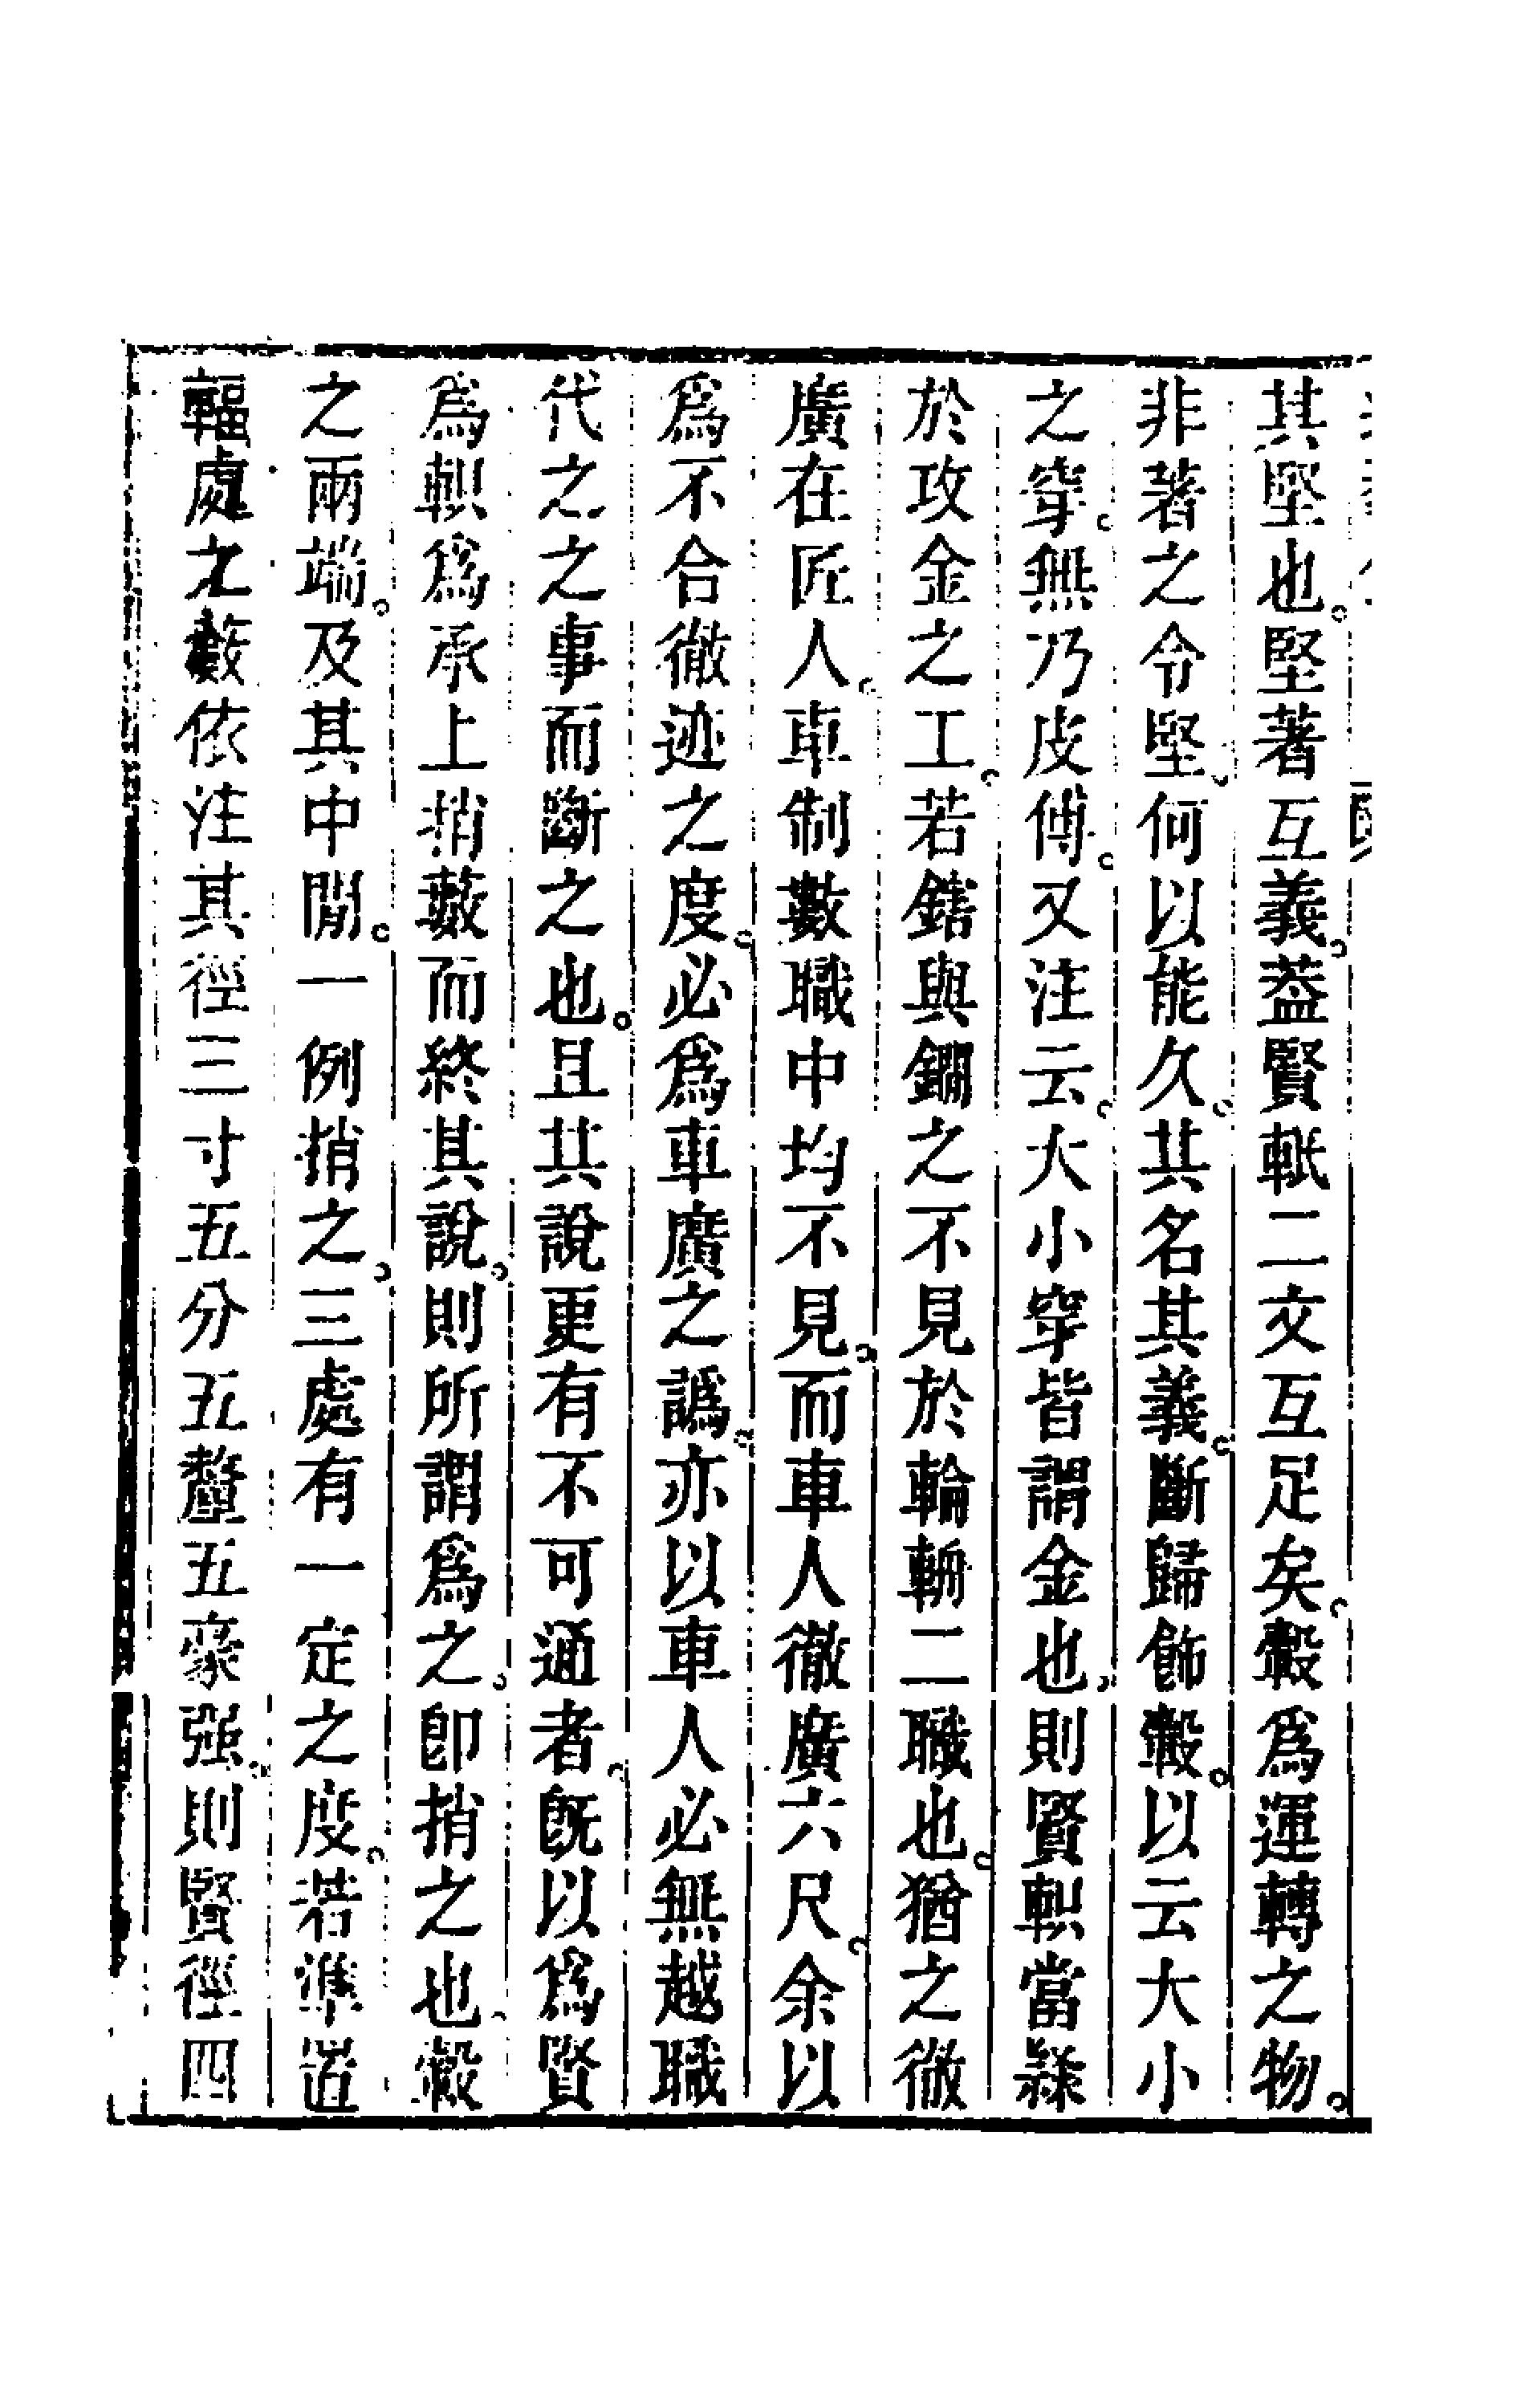 其堅也。堅著互義。葢賢軹二文互足矣。轂爲運轉之物。
非著之令堅。何以能久。其名其義。斷歸飾轂。以云大小
之穿。無乃皮傅。又注云。大小穿皆謂金也。則賢軹當隷
於攻金之工。若鎋與鐗之不見於輪輈二職也。猶之徹
廣在匠人。車制數職中均不見。而車人徹廣六尺。余以
爲不合徹迹之度。必爲車廣之譌。亦以車人必無越職
代之之事而斷之也。且其說更有不可通者。旣以爲賢
爲軹爲承上捎藪而終其說。則所謂爲之。卽捎之也。轂
之兩端。及其中閒。一例捎之。三處有一定之度。若準菑
輻處之藪依注其徑三寸五分五釐五豪强。則賢徑四